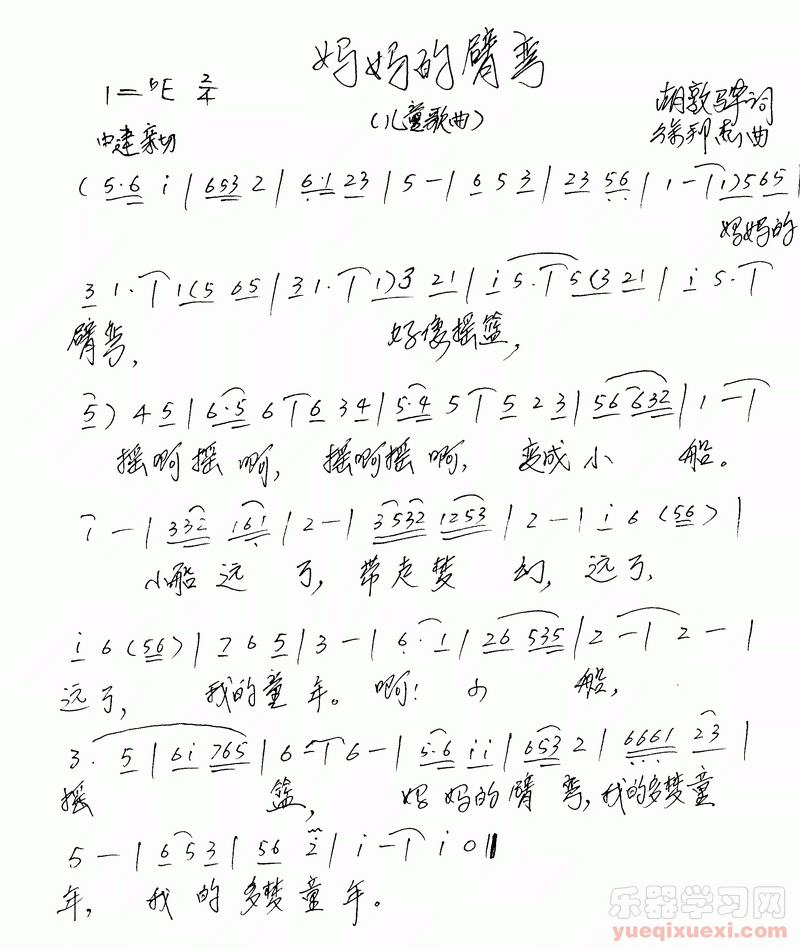 妈妈的臂弯
(儿童歌曲)
1=♭E 2/4
胡敦骅词
曲
中速 亲切
(5·6 i | 653 2 | 6·1 23 | 5 - | 6 5 3 | 23 56 | 1 - | 1) 565 |
妈妈的
3 1· | 1(5 65 | 3 1· | 1) 3 21 | i 5· | 5(3 21 | i 5· |
臂弯, 好像摇篮,
5) 4 5 | 6·5 6 | 6 3 4 | 5·4 5 | 5 2 3 | 56 632 | 1 - |
摇啊摇啊, 摇啊摇啊, 变成小船。
1 - | 332 161 | 2 - | 3532 1253 | 2 - | i 6 (56) |
小船远了, 带走梦幻, 远了,
i 6 (56) | 7 6 5 | 3 - | 6· 1 | 26 535 | 2 - | 2 - |
远了, 我的童年。啊! 小船,
3· 5 | 6i 765 | 6 - | 6 - | 5·6 ii | 653 2 | 6661 23 |
摇篮, 妈妈的臂弯, 我的多梦童
5 - | 6 5 3 | 56 2 | i - | i 0 ‖
年, 我的多梦童年。
乐器学习网
yueqixuexi.com